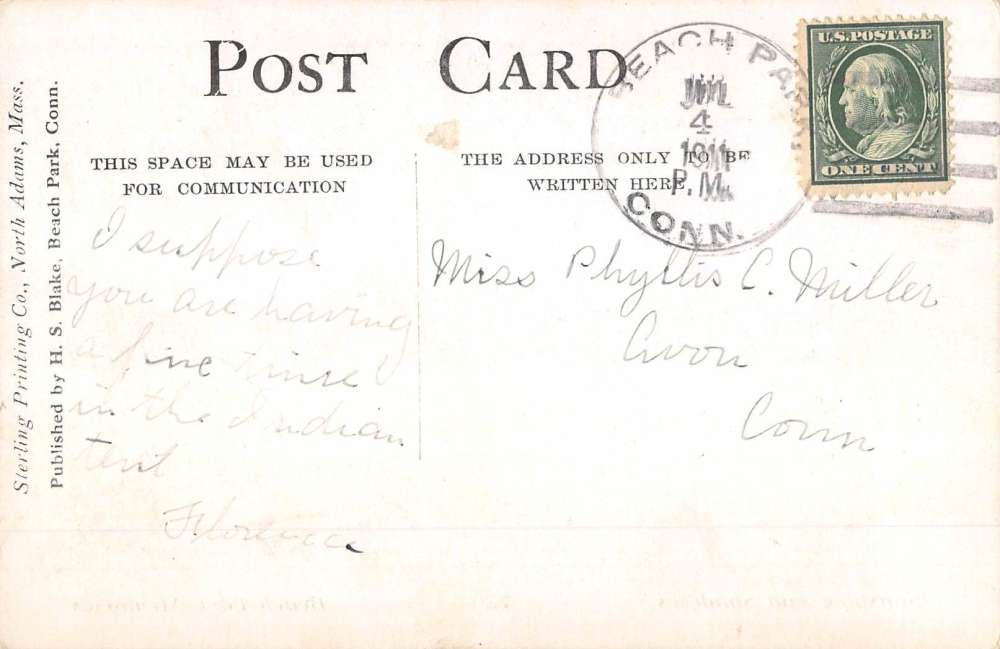 POST CARD
THIS SPACE MAY BE USED
FOR COMMUNICATION
THE ADDRESS ONLY TO BE
WRITTEN HERE
BEACH PARK
JUL
4
1911
P.M.
CONN.
U.S. POSTAGE
ONE CENT
Sterling Printing Co., North Adams, Mass.
Published by H. S. Blake, Beach Park, Conn.
I suppose
you are having
a fine time
in the Indian
tent
Florence
Miss Phyllis C. Miller
Avon
Conn